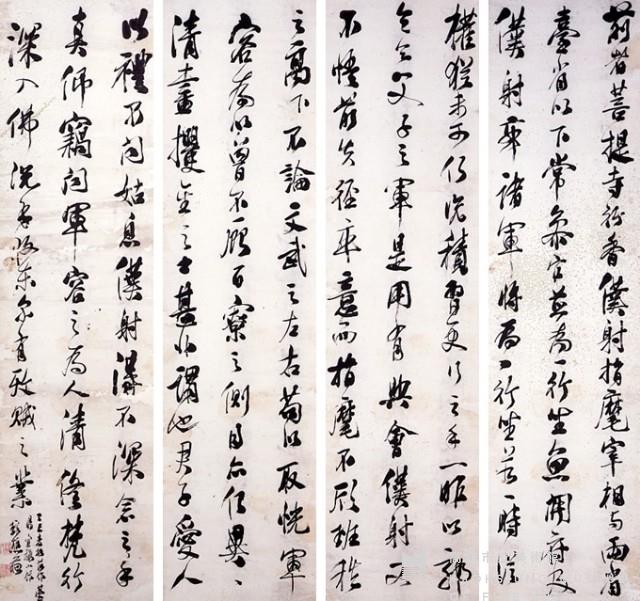 前者菩提寺行香僕射指麾宰相与兩省
臺省以下常參官並為一行坐魚開府及
僕射率諸軍將為一行坐若一時從
權猶未可何況積習更行之乎一昨以郭
令公父子之軍是用有興會僕射又
不悟前失徑率意而指麾不顧班秩
之高下不論文武之左右苟以取悅軍
容為心曾不顧百寮之側目亦何異
清晝攫金之士甚非謂也君子愛人
以禮不聞姑息僕射得不深念之乎
真卿竊聞軍容之為人清修梵行
深入佛況乎收東京有殄賊之業